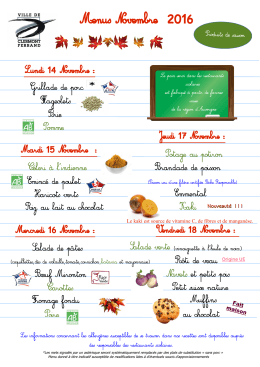 VILLE DE
CLERMONT
FERRAND
Menus Novembre 2016
Produits de saison
Lundi 14 Novembre :
Grillade de porc *
Flageolets
Brie
Pomme
Le pain servi dans les restaurants
scolaires
est fabriqué à partir de farines
issues
de la région d'Auvergne
Mardi 15 Novembre :
Céleri à l'indienne
Emincé de poulet
Haricots verts
Riz au lait au chocolat
Jeudi 17 Novembre :
Potage au potiron
Brandade de poisson
Emmental
Kaki Nouveauté !!!
Le kaki est source de vitamine C, de fibres et de manganèse.
Mercredi 16 Novembre :
Salade de pâtes
Bœuf Mironton
Carottes
Fromage fondu
Poire
Vendredi 18 Novembre :
Salade verte (vinaigrette à l'huile de noix)
Rôti de veau Origine UE
Navets et petits pois
Petit suisse nature
Muffins
au chocolat
Fait
maison
Les informations concernant les allergènes susceptibles de se trouver dans nos recettes sont disponibles auprès
des responsables des restaurants scolaires.
*Les mets signalés par un astérisque seront systématiquement remplacés par des plats de substitution « sans porc »
Menu donné à titre indicatif susceptible de modifications liées à d'éventuels soucis d'approvisionnements